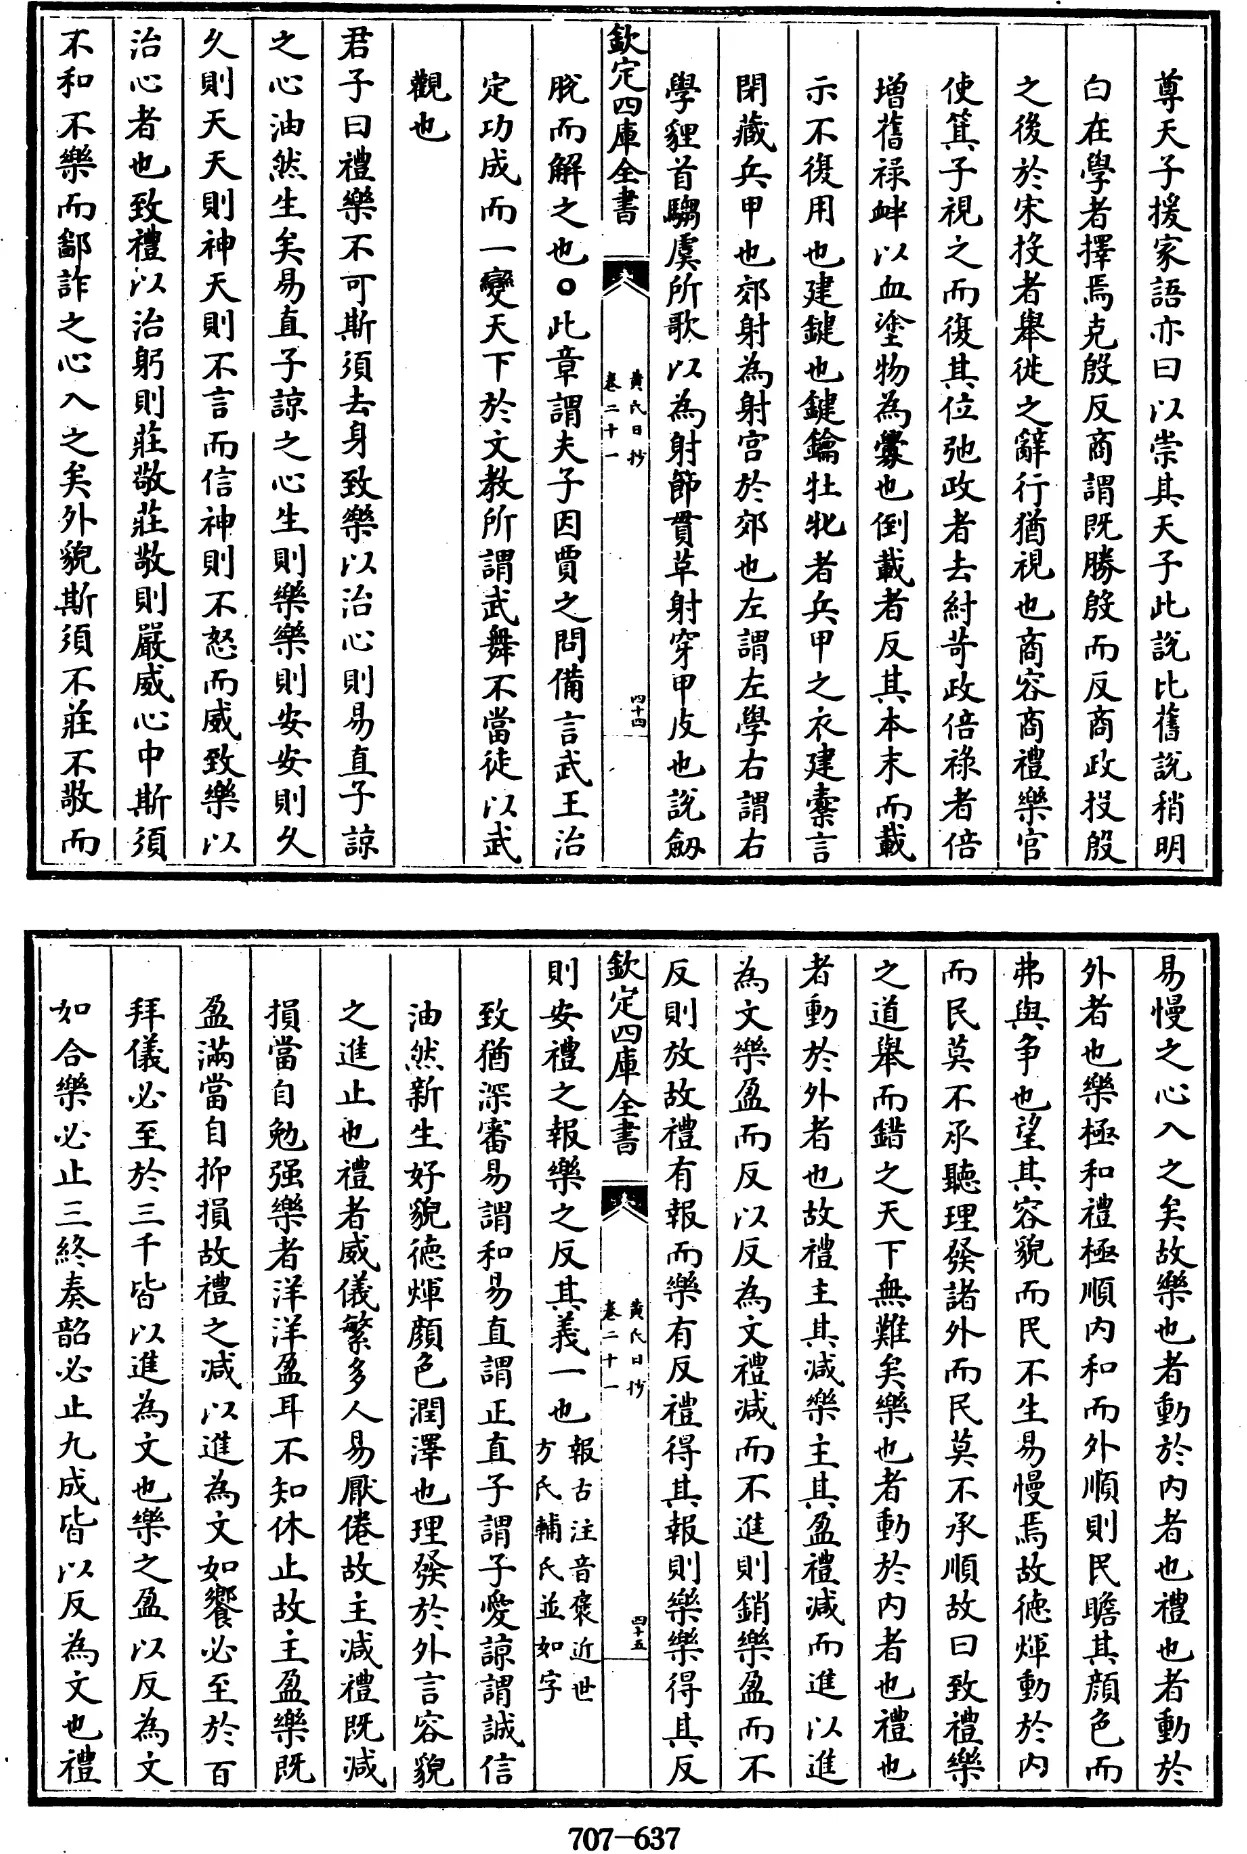 尊天子援家語亦曰以崇其天子此說比舊說稍明
白在學者擇焉克殷反商謂既勝殷而反商政投殷
之後於宋投者舉徙之辭行猶視也商容商禮樂官
使箕子視之而復其位弛政者去紂苛政倍祿者倍
增舊祿衅以血塗物為釁也倒載者反其本末而載
示不復用也建鍵也鍵鑰牡牝者兵甲之衣建櫜言
閉藏兵甲也郊射為射宮於郊也左謂左學右謂右
學貍首騶虞所歌以為射節貫革射穿甲皮也說劔
欽定四庫全書
黃氏日抄
卷二十一
四十四
脫而解之也○此章謂夫子因賈之問備言武王治
定功成而一變天下於文教所謂武舞不當徒以武
觀也
君子曰禮樂不可斯須去身致樂以治心則易直子諒
之心油然生矣易直子諒之心生則樂樂則安安則久
久則天天則神天則不言而信神則不怒而威致樂以
治心者也致禮以治躬則莊敬莊敬則嚴威心中斯須
不和不樂而鄙詐之心入之矣外貌斯須不莊不敬而
易慢之心入之矣故樂也者動於內者也禮也者動於
外者也樂極和禮極順內和而外順則民瞻其顏色而
弗與爭也望其容貌而民不生易慢焉故德煇動於內
而民莫不承聽理發諸外而民莫不承順故曰致禮樂
之道舉而錯之天下無難矣樂也者動於內者也禮也
者動於外者也故禮主其减樂主其盈禮减而進以進
為文樂盈而反以反為文禮减而不進則銷樂盈而不
反則放故禮有報而樂有反禮得其報則樂樂得其反
欽定四庫全書
黃氏日抄
卷二十一
四十五
則安禮之報樂之反其義一也報古注音褒近世
方氏輔氏並如字
致猶深審易謂和易直謂正直子謂子愛諒謂誠信
油然新生好貌德煇顏色潤澤也理發於外言容貌
之進止也禮者威儀繁多人易厭倦故主减禮既减
損當自勉强樂者洋洋盈耳不知休止故主盈樂既
盈滿當自抑損故禮之减以進為文如饗必至於百
拜儀必至於三千皆以進為文也樂之盈以反為文
如合樂必止三終奏韶必止九成皆以反為文也禮
707-637